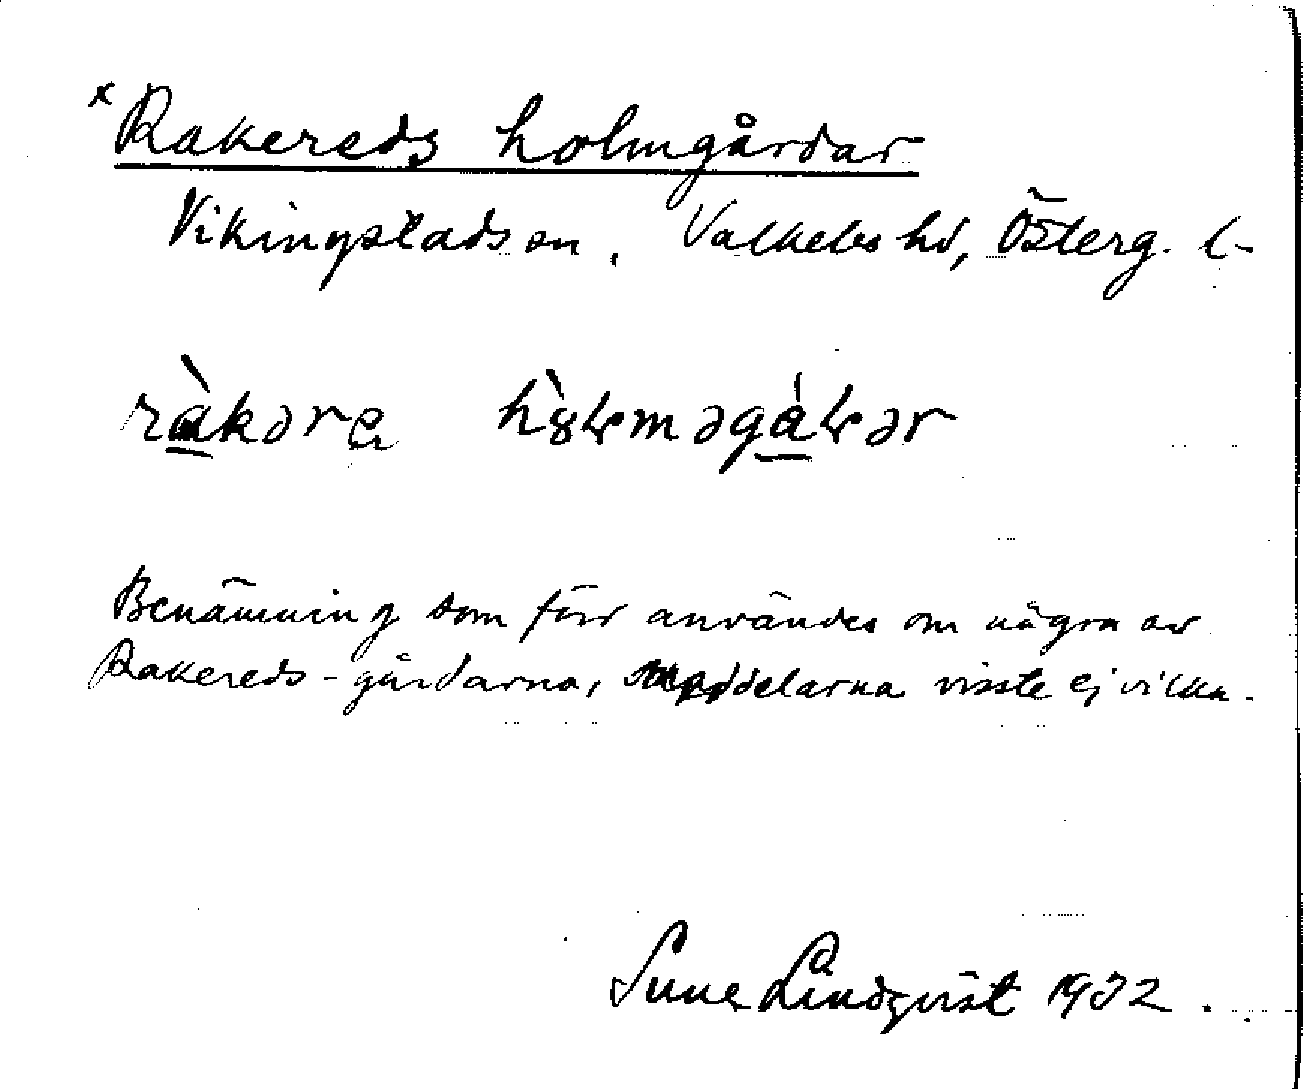 × Rakereds holmgårdar
Vikingstads sn, Valkebo hd, Österg. l.
ràkəra hòɽməgáɽər
Benämning som förr användes om några av
Rakereds-gårdarna, meddelarna visste ej vilka.
Sune Lindqvist 1932.